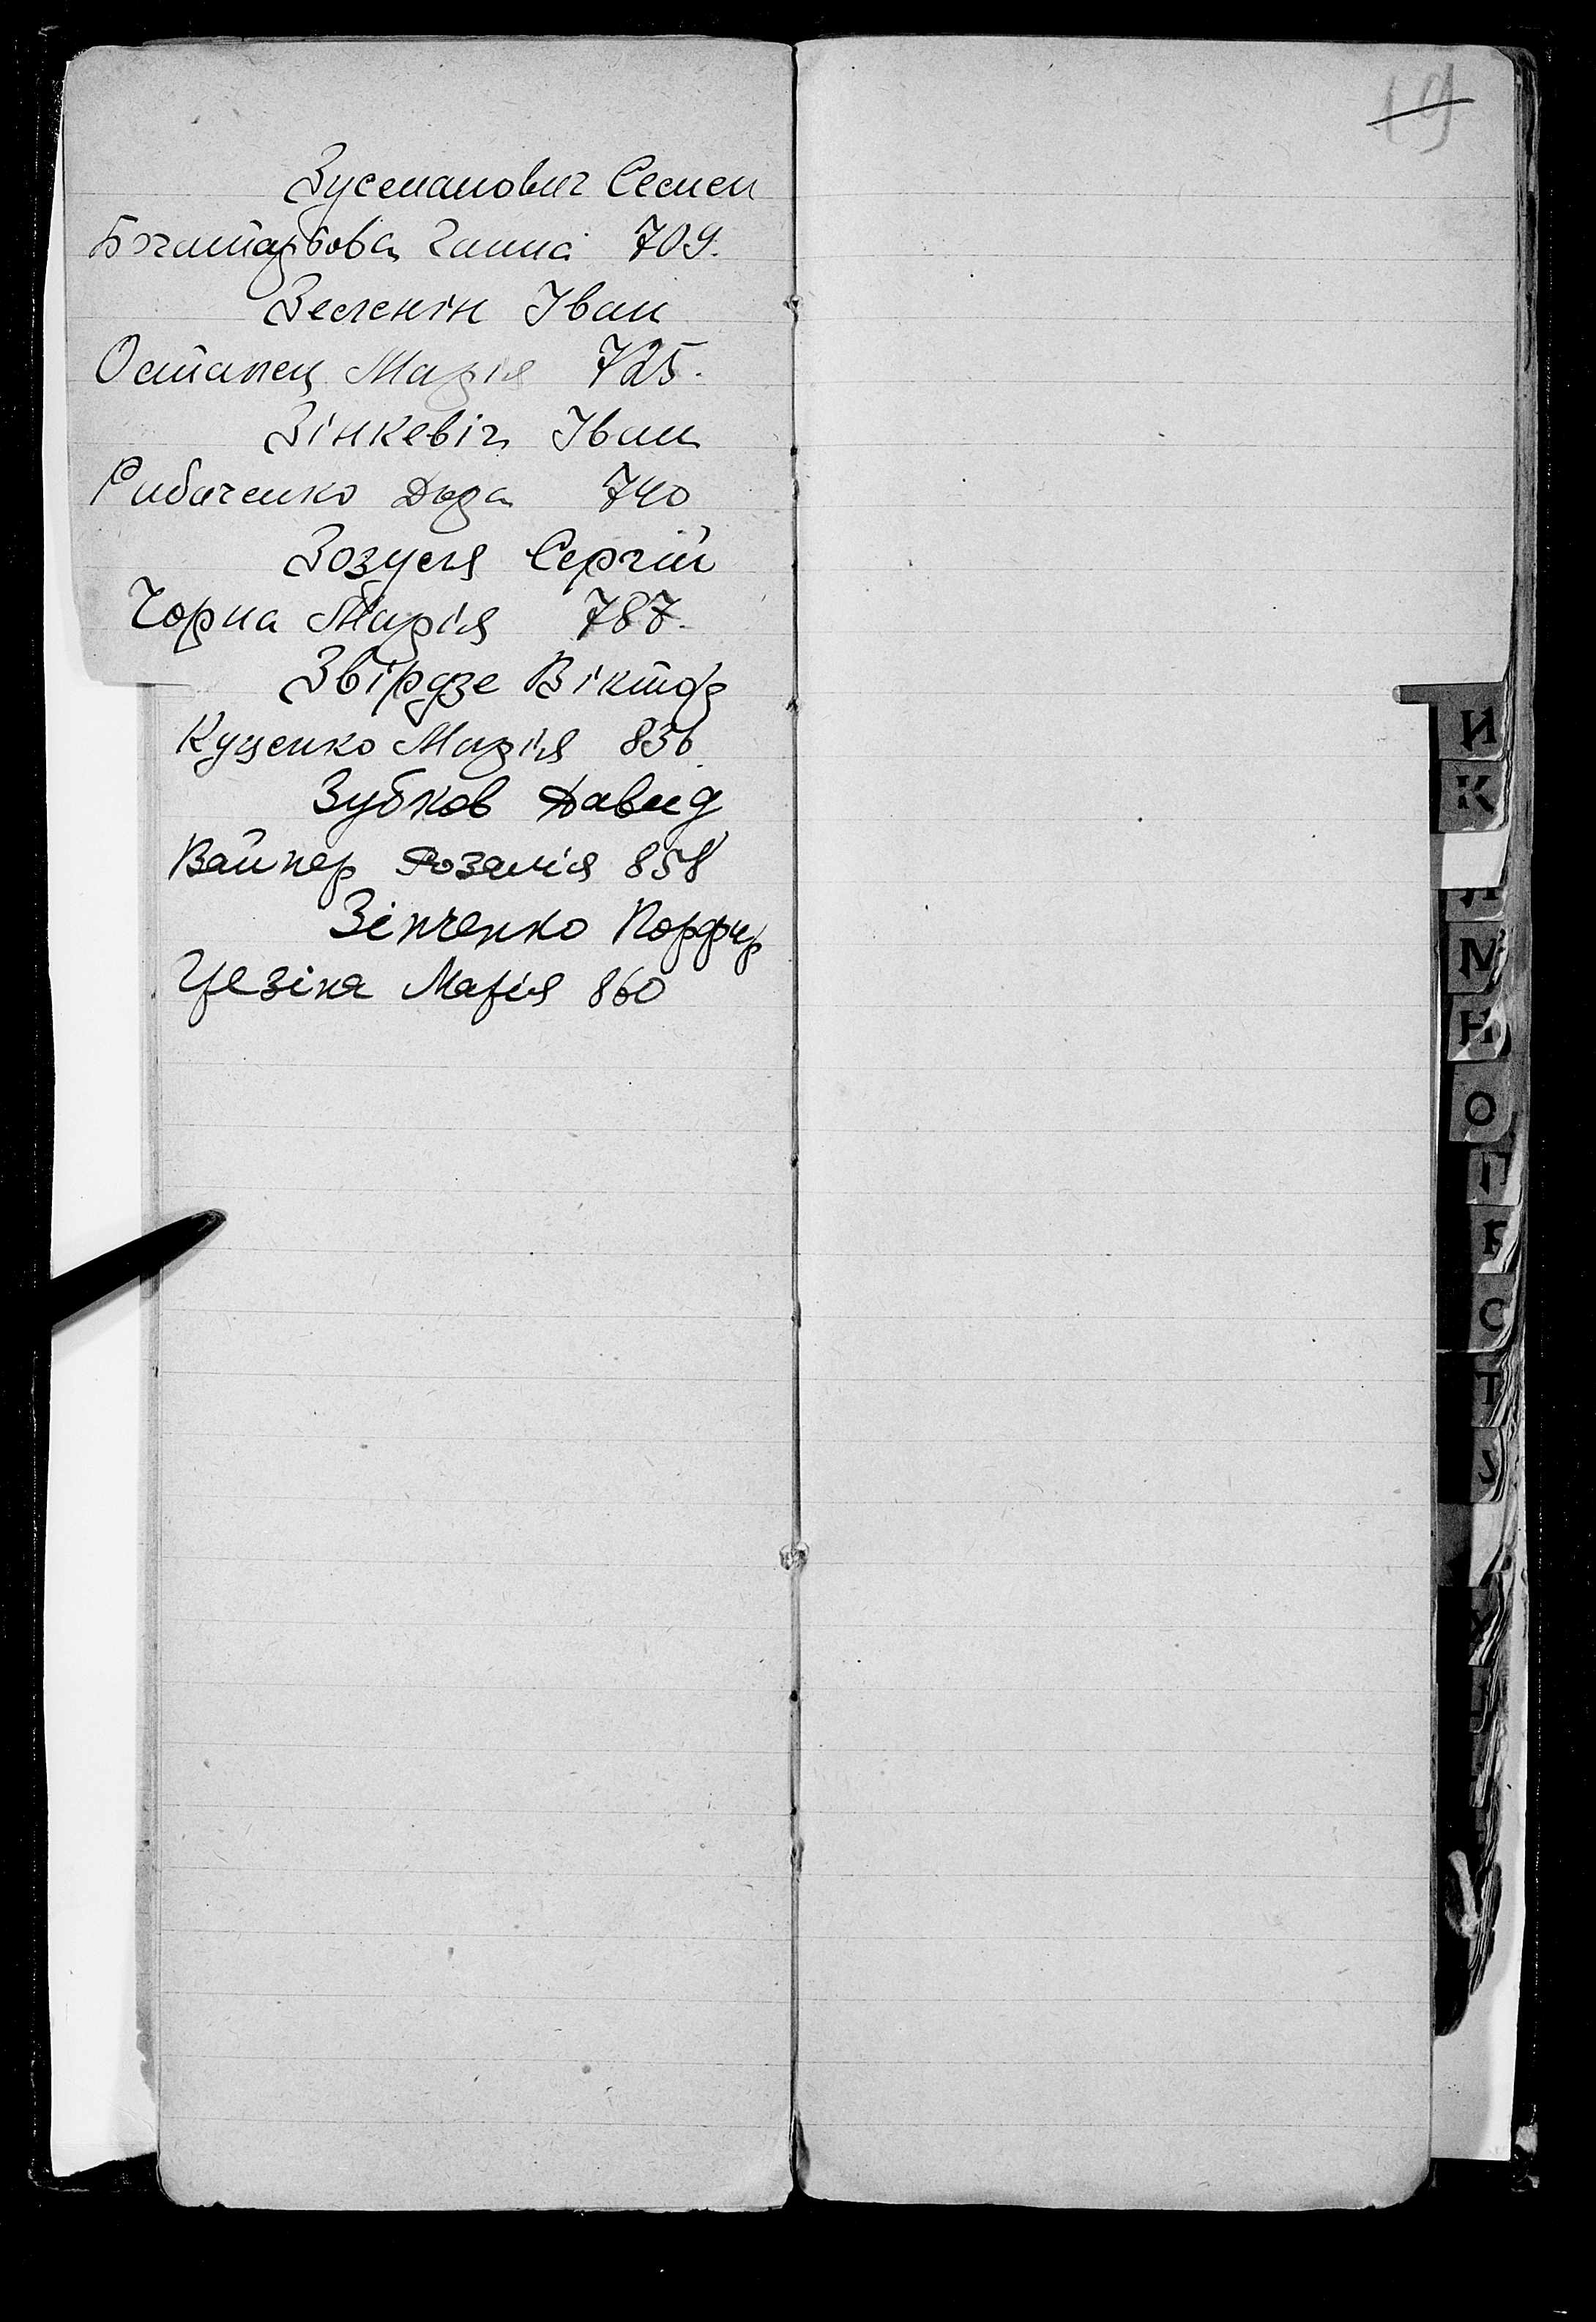 Зусманович Семен
Ганна 709.
Зеленін Іван
Останец Марія 725.
Зінкевіч Іван
Рибаченко Дора 740
Зозуля Сергій
Чорна Марія 787.
Звірдзе Віктор
Куценко Марія 836.
Зубков Давид
Вайнер Розалія 858
Зінченко Порфир
Цезіна Марія 860
19
И
К
Л
М
Н
О
П
Р
С
Т
У
Х